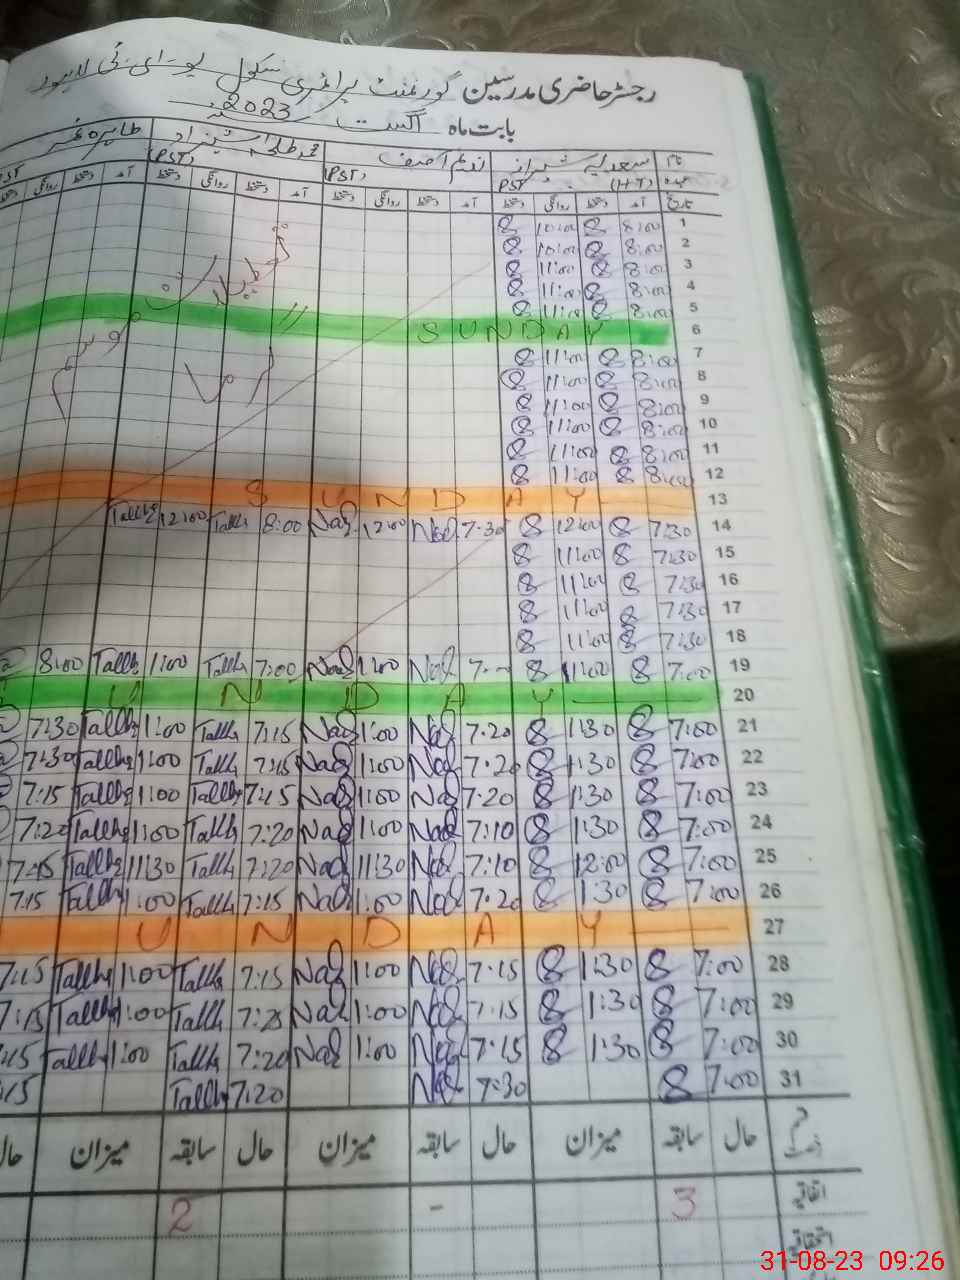 رجسٹر حاضری مدرسین گورنمنٹ پرائمری سکول یو۔ای۔ٹی لاہور
بابت ماہ اگست 2023
نام سعدیہ شیراز ندیم آصف محمد طلحہ شہزاد طاہرہ
عہدہ (H.T) PST (PST) (PST) PST
تاریخ آمد دستخط روانگی دستخط آمد دستخط روانگی دستخط آمد دستخط روانگی دستخط آمد دستخط روانگی دستخط
1 8:00 8 10:00 8
2 8:00 8 10:00 8
3 8:00 8 11:00 8
4 8:00 8 11:00 8
5 8:00 8 11:00 8
6 SUNDAY
7 8:00 8 11:00 8
8 8:00 8 11:00 8
9 8:00 8 11:00 8
10 8:00 8 11:00 8
11 8:00 8 11:00 8
12 8:00 8 11:00 8
تعطیلات موسم گرما
13 SUNDAY
14 7:30 8 12:00 8 7:30 Nad 12:00 Nad 8:00 Talha 12:00 Talha
15 7:30 8 11:00 8
16 7:30 8 11:00 8
17 7:30 8 11:00 8
18 7:30 8 11:00 8
19 7:00 8 11:00 8 Nad 1:00 Nad 7:00 Talha 1:00 Talha 8:00
20 UNDAY
21 7:00 8 1:30 8 7:20 Nad 1:00 Nad 7:15 Talha 1:00 Talha 7:30
22 7:00 8 1:30 8 7:20 Nad 1:00 Nad 7:15 Talha 1:00 Talha 7:30
23 7:00 8 1:30 8 7:20 Nad 1:00 Nad 7:15 Talha 1:00 Talha 7:15
24 7:00 8 1:30 8 7:10 Nad 1:00 Nad 7:20 Talha 1:00 Talha 7:20
25 7:00 8 12:00 8 7:10 Nad 11:30 Nad 7:20 Talha 11:30 Talha 7:15
26 7:00 8 1:30 8 7:20 Nad 1:00 Nad 7:15 Talha 1:00 Talha 7:15
27 UNDAY
28 7:00 8 1:30 8 7:15 Nad 1:00 Nad 7:15 Talha 1:00 Talha 7:15
29 7:00 8 1:30 8 7:15 Nad 1:00 Nad 7:25 Talha 1:00 Talha 7:15
30 7:00 8 1:30 8 7:15 Nad 1:00 Nad 7:20 Talha 1:00 Talha :15
31 7:00 8 7:30 Nad 7:20 Talha :15
قسم رخصت حال سابقہ میزان حال سابقہ میزان حال سابقہ میزان حال
اتفاقیہ 3 - 2
استحقاقیہ
31-08-23 09:26